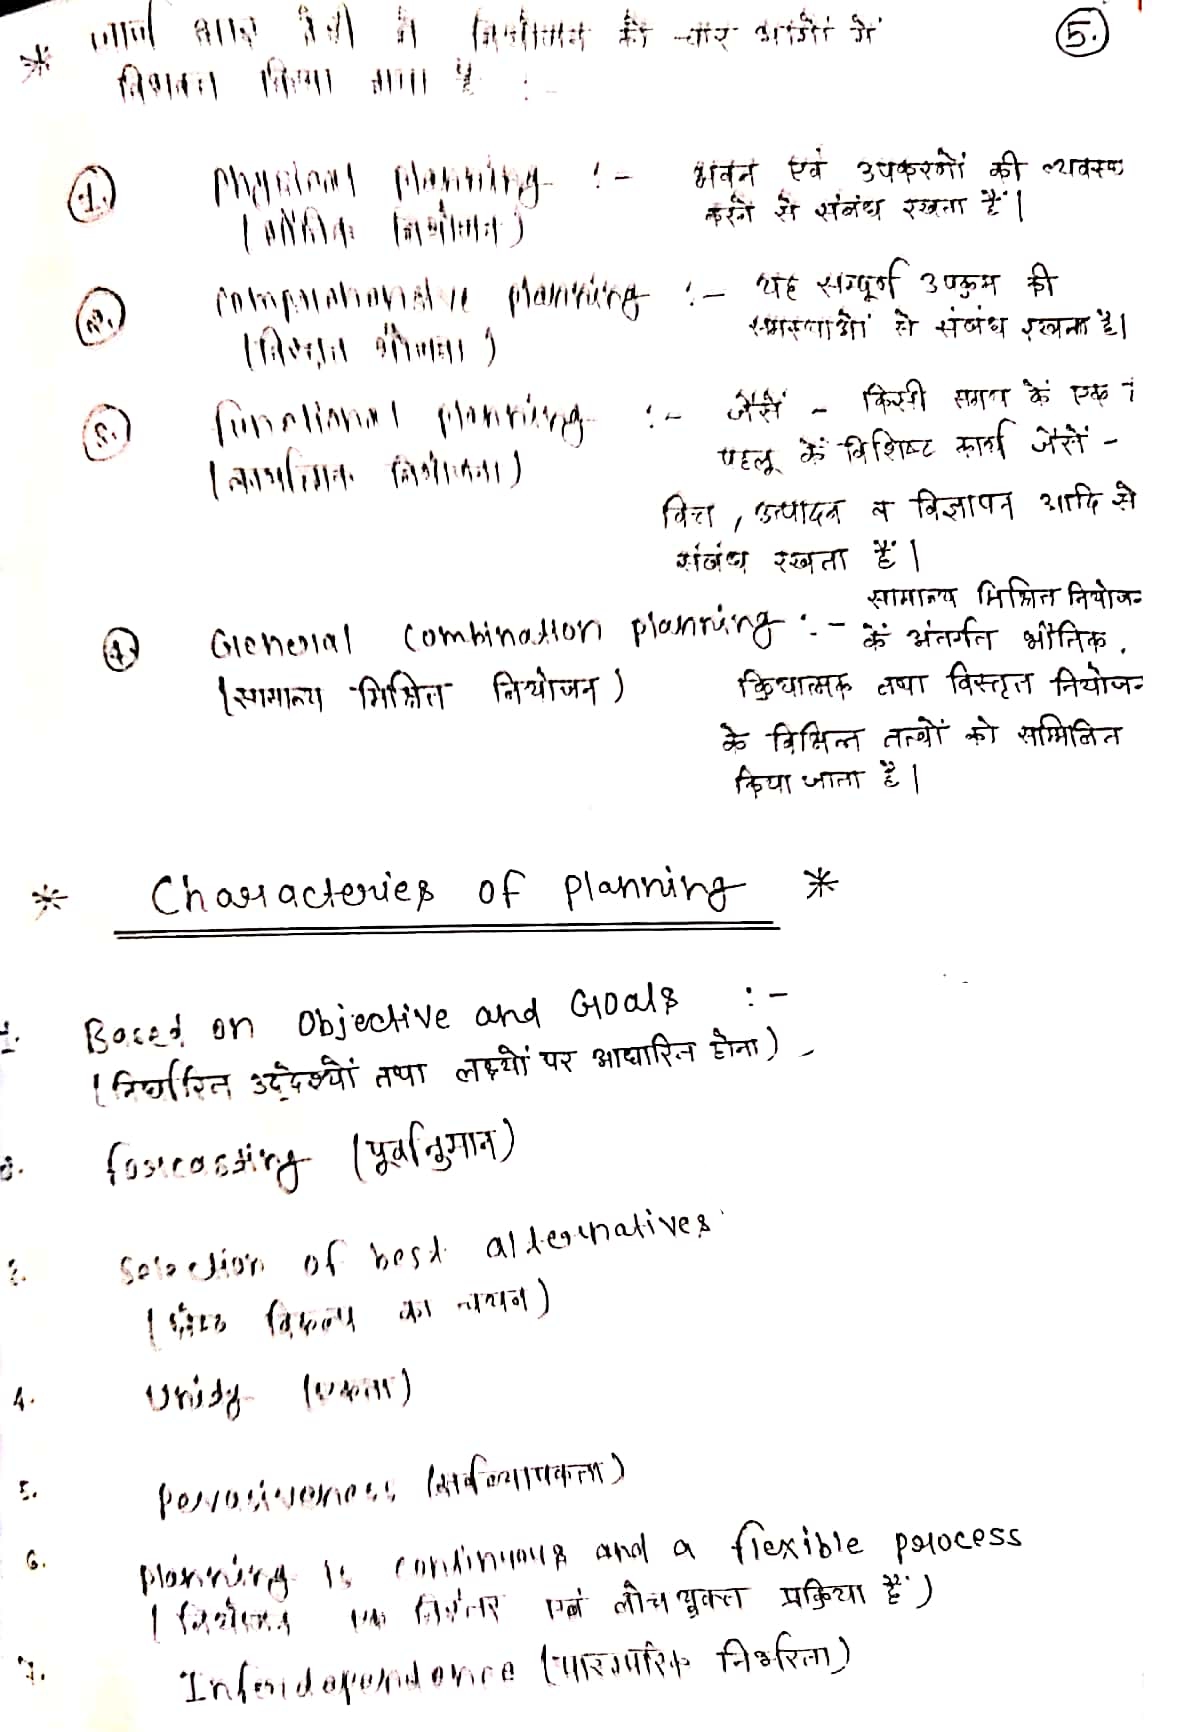 5.
* जार्ज आर टेरी ने नियोजन को चार भागों में
विभक्त किया गया है :-
1. Physical planning :- भवन एवं उपकरणों की व्यवस्था
(भौतिक नियोजन) करने से संबंध रखता है।
2. Comprehensive planning :- यह सम्पूर्ण उपक्रम की
(विस्तृत योजना) समस्याओं से संबंध रखता है।
3. functional planning :- जैसें - किसी समग्र कें एक
(कार्यात्मक नियोजन) पहलू कें विशिष्ट कार्य जैसें -
वित्त, उत्पादन व विज्ञापन आदि से
संबंध रखता है।
सामान्य मिश्रित नियोजन
4. General Combination planning :- कें अंतर्गत भौतिक,
(सामान्य मिश्रित नियोजन) क्रियात्मक तथा विस्तृत नियोजन
के विभिन्न तत्वों को सम्मिलित
किया जाता है।
* Characteries of planning *
1. Based on Objective and Goals :-
(निर्धारित उद्देश्यों तथा लक्ष्यों पर आधारित होना)
2. forecasting (पूर्वानुमान)
3. Selection of best alternatives
(श्रेष्ठ विकल्प का चयन)
4. Unity (एकता)
5. pervasiveness (सर्वव्यापकता)
6. planning is continuous and a flexible process
(नियोजन एक निरंतर एवं लोचयुक्त प्रक्रिया है)
7. Interdependence (पारस्परिक निर्भरता)